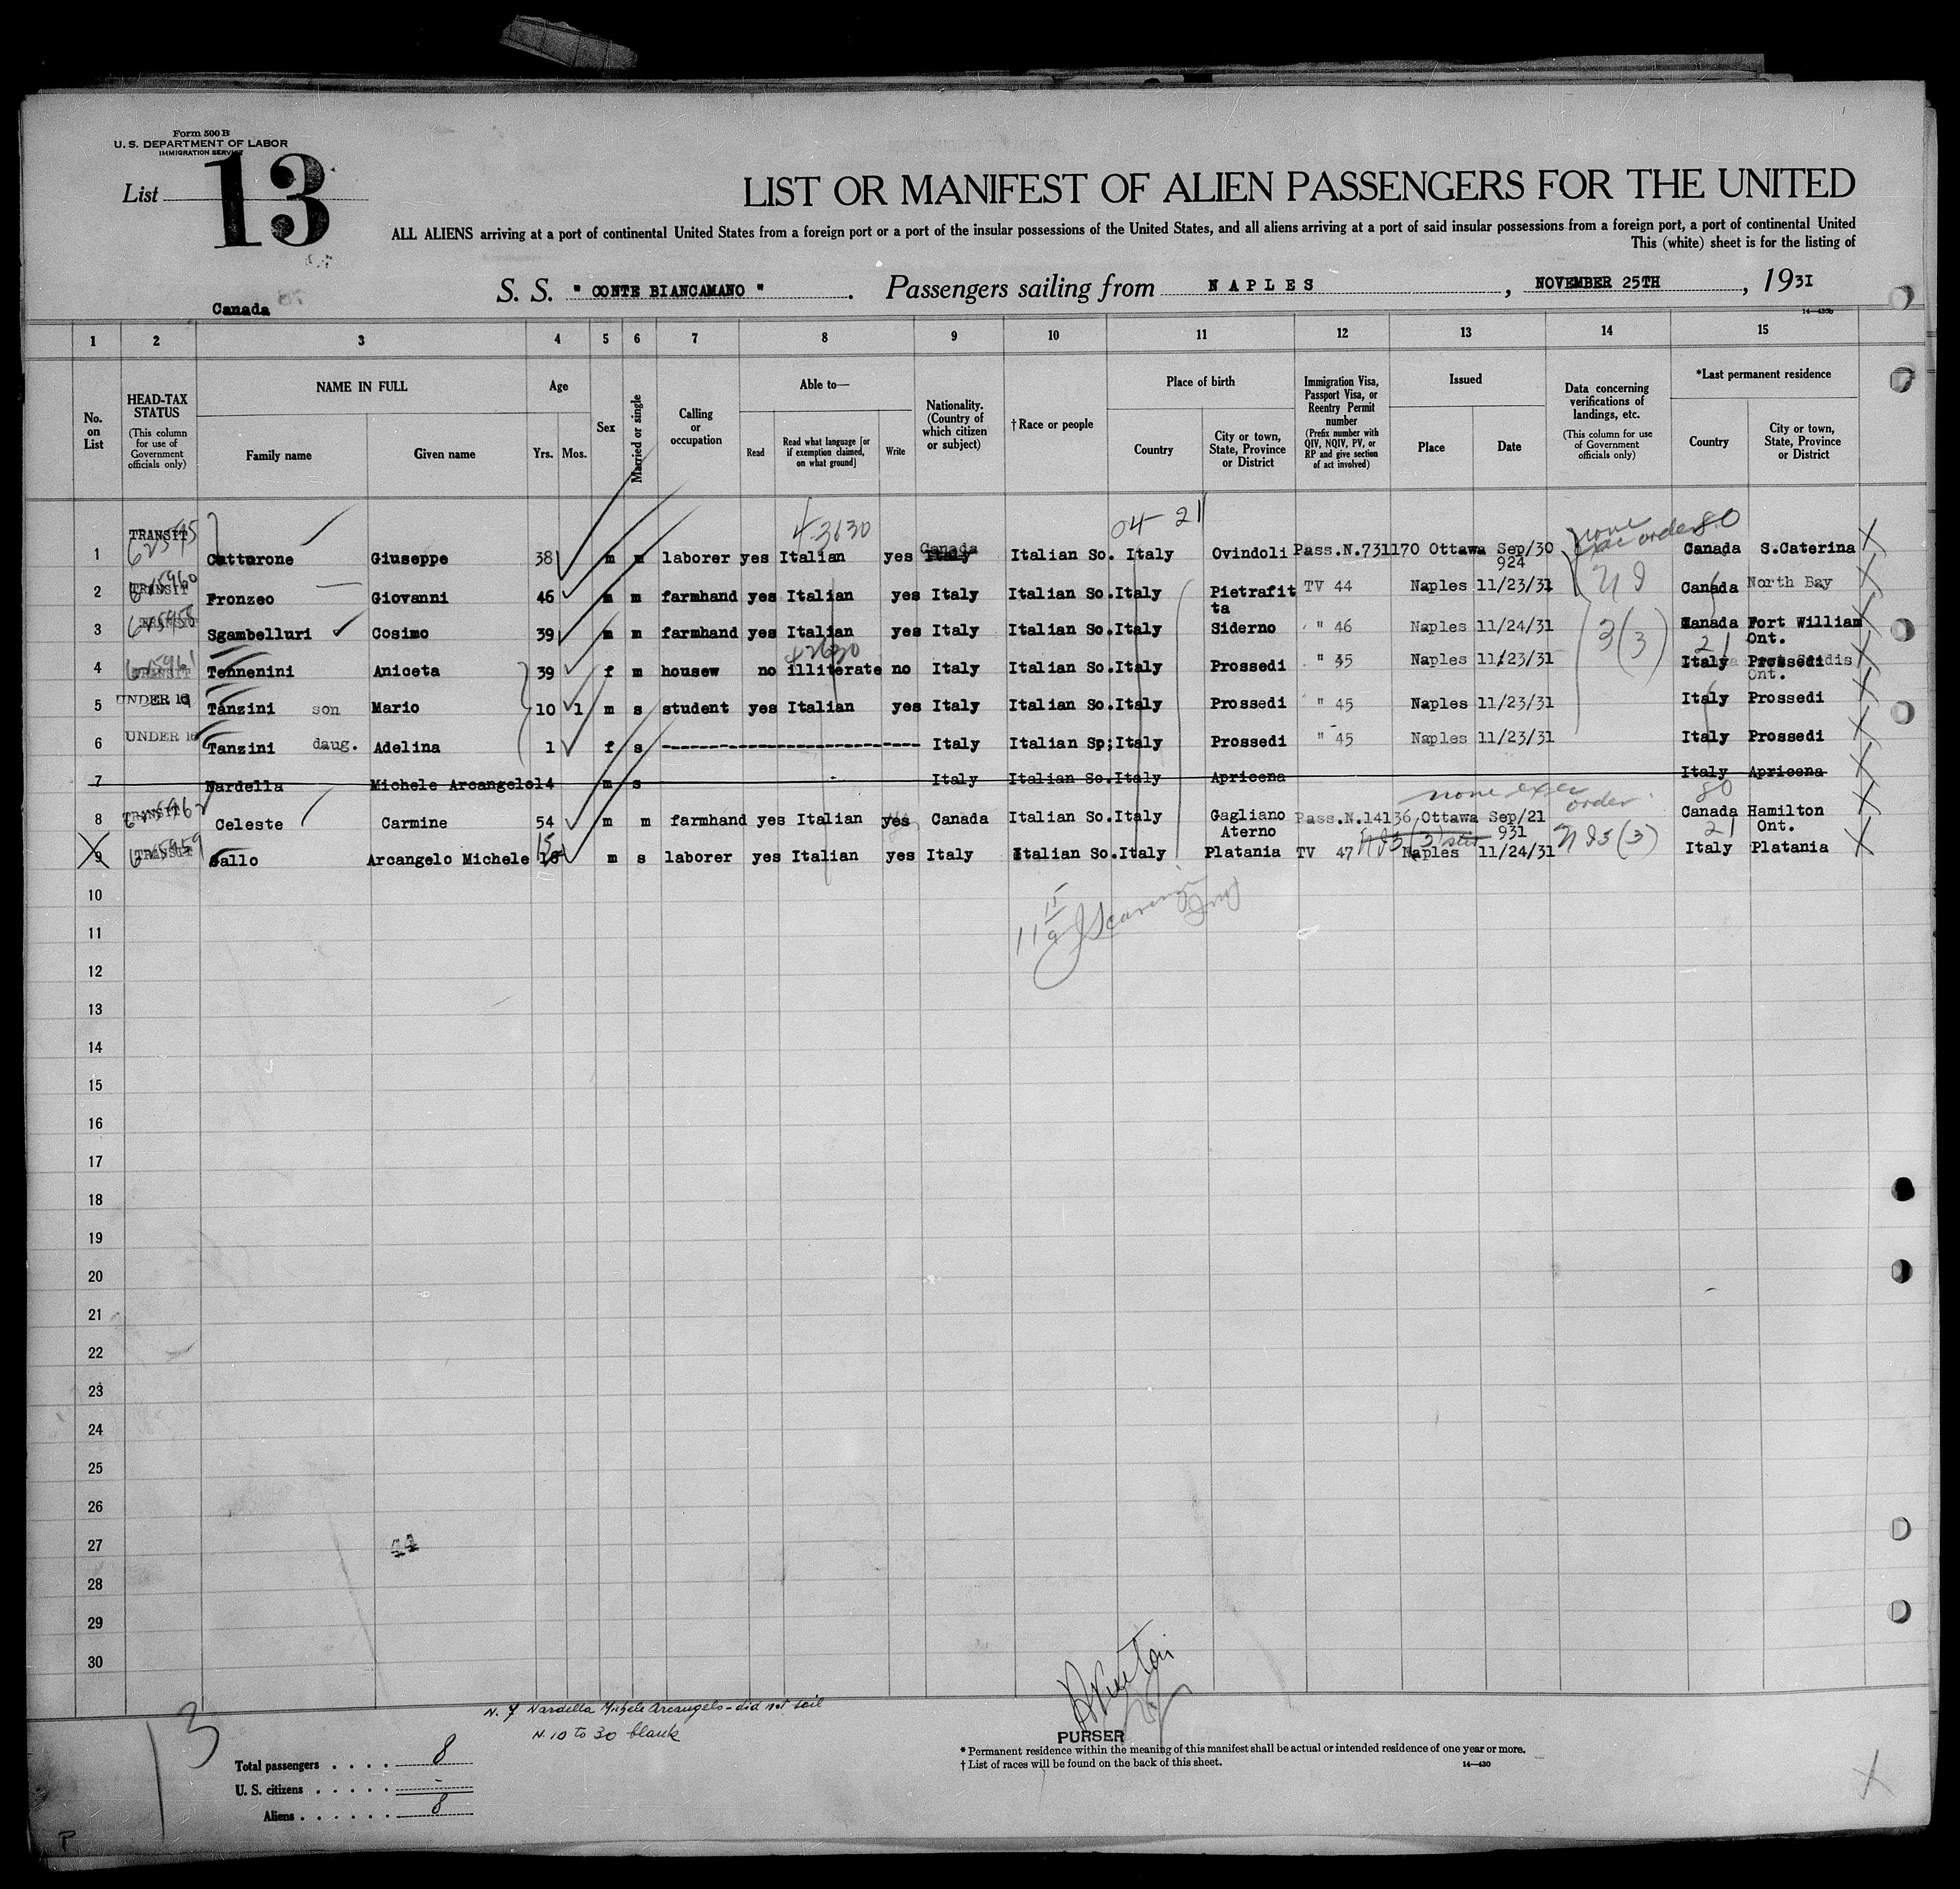 Form 500 B
U. S. DEPARTMENT OF LABOR
IMMIGRATION SERVICE
List 13
LIST OR MANIFEST OF ALIEN PASSENGERS FOR THE UNITED
ALL ALIENS arriving at a port of continental United States from a foreign port or a port of the insular possessions of the United States, and all aliens arriving at a port of said insular possessions from a foreign port, a port of continental United
This (white) sheet is for the listing of
S. S. " CONTE BIANCAMANO " . Passengers sailing from NAPLES , NOVEMBER 25TH , 1931
Canada
14—430b
1 2 3 4 5 6 7 8 9 10 11 12 13 14 15
No. on List
HEAD-TAX STATUS (This column for use of Government officials only)
NAME IN FULL
Family name Given name
Age
Yrs. Mos.
Sex
Married or single
Calling or occupation
Able to—
Read Read what language [or if exemption claimed, on what ground] Write
Nationality. (Country of which citizen or subject)
† Race or people
Place of birth
Country City or town, State, Province or District
Immigration Visa, Passport Visa, or Reentry Permit number (Prefix number with QIV, NQIV, PV, or RP and give section of act involved)
Issued
Place Date
Data concerning verifications of landings, etc. (This column for use of Government officials only)
*Last permanent residence
Country City or town, State, Province or District
43630 04 21 none 80
1 TRANSIT Giuseppe 38 m m laborer yes Italian yes Canada Italy Italian So. Italy Ovindoli Pass.N.731170 Ottawa Sep/30 924 Canada S.Caterina
2 TRANSIT 625960 Fronzeo Giovanni 46 m m farmhand yes Italian yes Italy Italian So.Italy Pietrafitta TV 44 Naples 11/23/31 Canada North Bay
3 TRANSIT 625958 Sgambelluri Cosimo 39 m m farmhand yes Italian yes Italy Italian So.Italy Siderno " 46 Naples 11/24/31 3(3) Canada Fort William Ont.
4 TRANSIT 625961 Tennenini Aniceta 39 f m housew no illiterate no Italy Italian So.Italy Prossedi " 45 Naples 11/23/31 21 Italy Prossedi Ont.
5 UNDER 16 Tanzini son Mario 10 1 m s student yes Italian yes Italy Italian So.Italy Prossedi " 45 Naples 11/23/31 Italy Prossedi
6 UNDER 16 Tanzini daug. Adelina 1 f s -------------------------- Italy Italian Sp;Italy Prossedi " 45 Naples 11/23/31 Italy Prossedi
7 Nardella Michele Arcangelo 14 m s Italy Italian So.Italy Apricena Italy Apricena
none exec order 80
8 TRANSIT 625962 Celeste Carmine 54 m m farmhand yes Italian yes Canada Italian So.Italy Gagliano Aterno Pass.N.14136,Ottawa Sep/21 931 Canada Hamilton Ont.
9 TRANSIT 625959 Gallo Arcangelo Michele 15 m s laborer yes Italian yes Italy Italian So.Italy Platania TV 47 Naples 11/24/31 21 Italy Platania
10
11
12
13
14
15
16
17
18
19
20
21
22
23
24
25
26
27 44
28
29
30
N. 7 Nardella Michele Arcangelo - did not sail
N. 10 to 30 blank
13
PURSER
Total passengers . . . . 8
U. S. citizens . . . . . . -
Aliens . . . . . . 8
* Permanent residence within the meaning of this manifest shall be actual or intended residence of one year or more.
† List of races will be found on the back of this sheet.
14—430
P